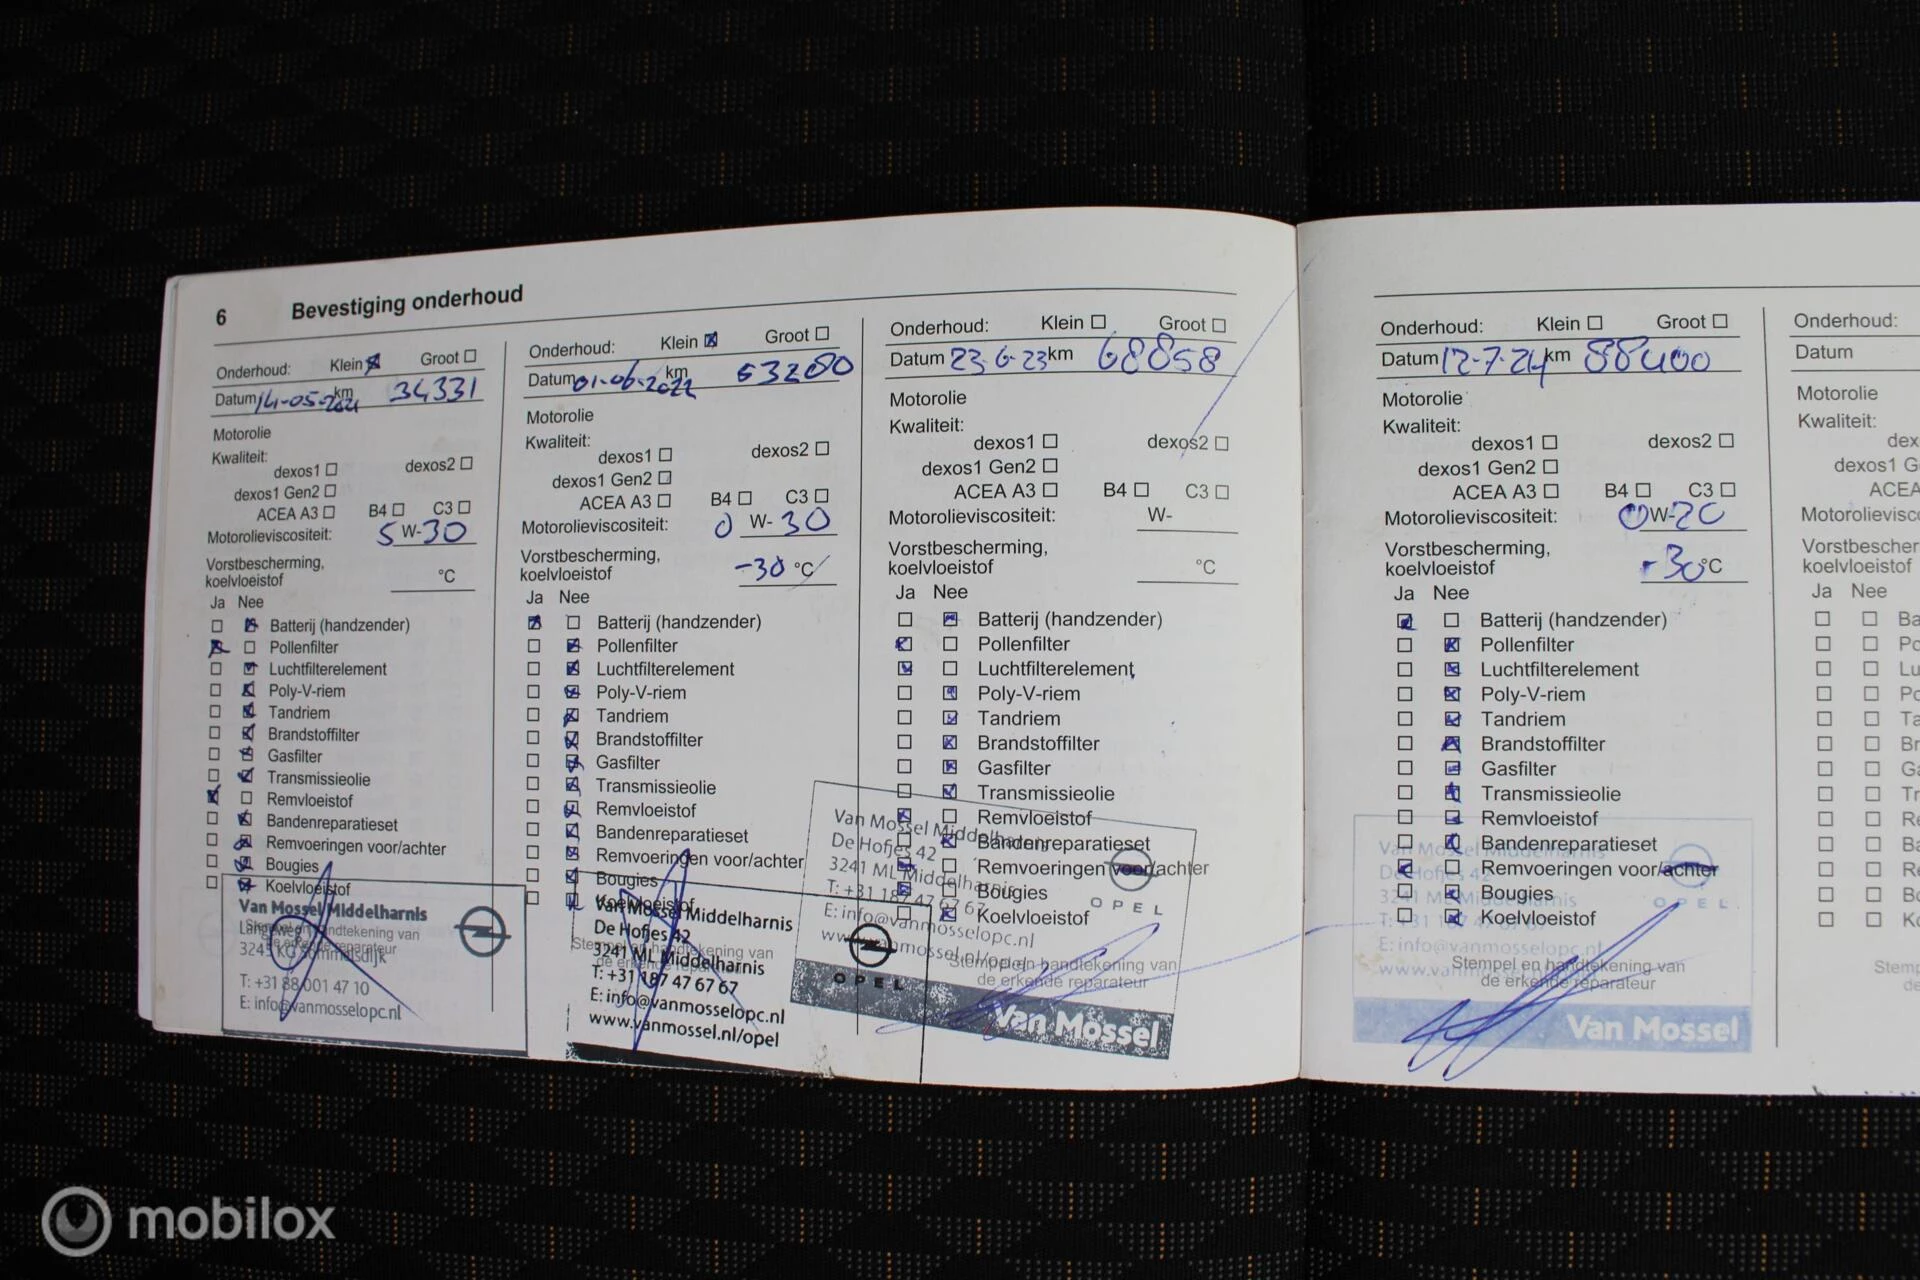 6 Bevestiging onderhoud
Onderhoud: Klein Groot
Datum 14-05-2021 km 34331
Motorolie
Kwaliteit:
dexos1 dexos2
dexos1 Gen2
ACEA A3 B4 C3
Motorolieviscositeit: 5 W-30
Vorstbescherming,
koelvloeistof °C
Ja Nee
Batterij (handzender)
Pollenfilter
Luchtfilterelement
Poly-V-riem
Tandriem
Brandstoffilter
Gasfilter
Transmissieolie
Remvloeistof
Bandenreparatieset
Remvoeringen voor/achter
Bougies
Koelvloeistof
Van Mossel Middelharnis
Stempel en handtekening van
de erkende reparateur
Langeweg
Sommelsdijk
T: +31 88 001 47 10
E: info@vanmosselopc.nl
Onderhoud: Klein Groot
Datum 01-06-2022 km 53280
Motorolie
Kwaliteit:
dexos1 dexos2
dexos1 Gen2
ACEA A3 B4 C3
Motorolieviscositeit: 0 W-30
Vorstbescherming,
koelvloeistof -30 °C
Ja Nee
Batterij (handzender)
Pollenfilter
Luchtfilterelement
Poly-V-riem
Tandriem
Brandstoffilter
Gasfilter
Transmissieolie
Remvloeistof
Bandenreparatieset
Remvoeringen voor/achter
Bougies
Koelvloeistof
Van Mossel Middelharnis
De Hofjes 42
Stempel en handtekening van
3241 ML Middelharnis
de erkende reparateur
T: +31 187 47 67 67
E: info@vanmosselopc.nl
www.vanmossel.nl/opel
OPEL
Onderhoud: Klein Groot
Datum 23-6-23 km 68858
Motorolie
Kwaliteit:
dexos1 dexos2
dexos1 Gen2
ACEA A3 B4 C3
Motorolieviscositeit: W-
Vorstbescherming,
koelvloeistof °C
Ja Nee
Batterij (handzender)
Pollenfilter
Luchtfilterelement
Poly-V-riem
Tandriem
Brandstoffilter
Gasfilter
Transmissieolie
Remvloeistof
Bandenreparatieset
Remvoeringen voor/achter
Bougies
Koelvloeistof
Van Mossel Middelharnis
De Hofjes 42
3241 ML Middelharnis
T: +31 187 47 67 67
E: info@vanmosselopc.nl
www.vanmossel.nl/opel
OPEL
Stempel en handtekening van
de erkende reparateur
Van Mossel
Onderhoud: Klein Groot
Datum 12-7-24 km 88400
Motorolie
Kwaliteit:
dexos1 dexos2
dexos1 Gen2
ACEA A3 B4 C3
Motorolieviscositeit: 0 W-20
Vorstbescherming,
koelvloeistof -30 °C
Ja Nee
Batterij (handzender)
Pollenfilter
Luchtfilterelement
Poly-V-riem
Tandriem
Brandstoffilter
Gasfilter
Transmissieolie
Remvloeistof
Bandenreparatieset
Remvoeringen voor/achter
Bougies
Koelvloeistof
Van Mossel Middelharnis
De Hofjes 42
3241 ML Middelharnis
T: +31 187 47 67 67
E: info@vanmosselopc.nl
OPEL
Stempel en handtekening van
de erkende reparateur
Van Mossel
Onderhoud:
Datum
Motorolie
Kwaliteit:
dex
dexos1 G
ACEA
Motorolievisc
Vorstbescher
koelvloeistof
Ja Nee
Ba
Po
Lu
Po
Ta
Br
Ga
Tr
Re
Ba
Re
Bo
Ko
Stemp
de
mobilox